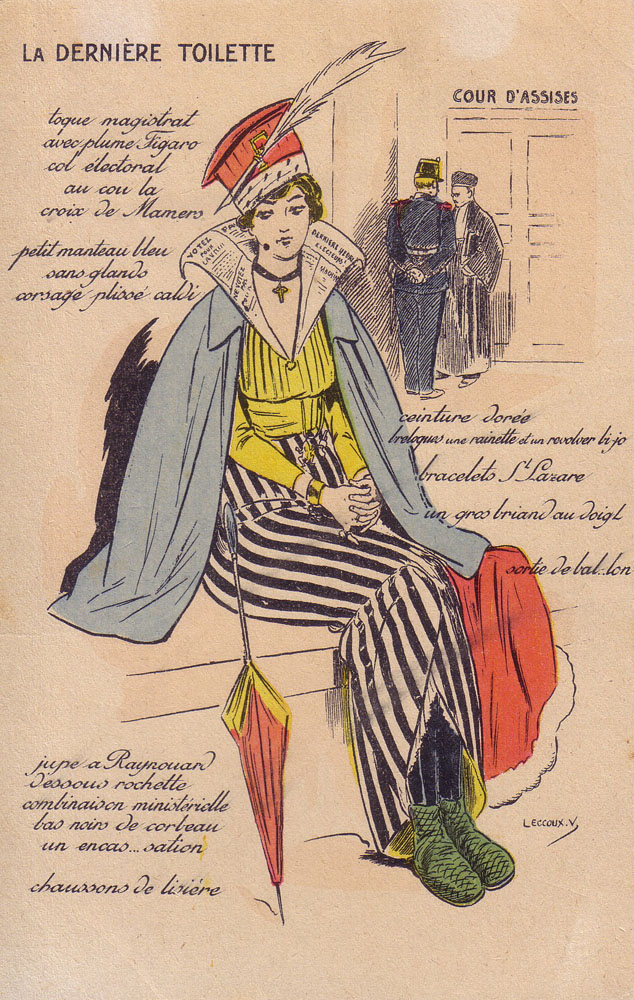 LA DERNIÈRE TOILETTE
COUR D'ASSISES
toque magistrat
avec plume Figaro
col électoral
au cou la
croix de Mamers
petit manteau bleu
sans glands
corsage plissé caldi
VOTEZ
POUR
DERNIERE HEURE
ELECTEURS
ceinture dorée
breloques une rainette et un revolver bi-jo
bracelets St Lazare
un gros briand au doigt
sortie de bal..lon
jupe a Raynouard
dessous rochette
combinaison ministérielle
bas noirs de corbeau
un encas...sation
chaussons de lisiére
LECCOUX.V